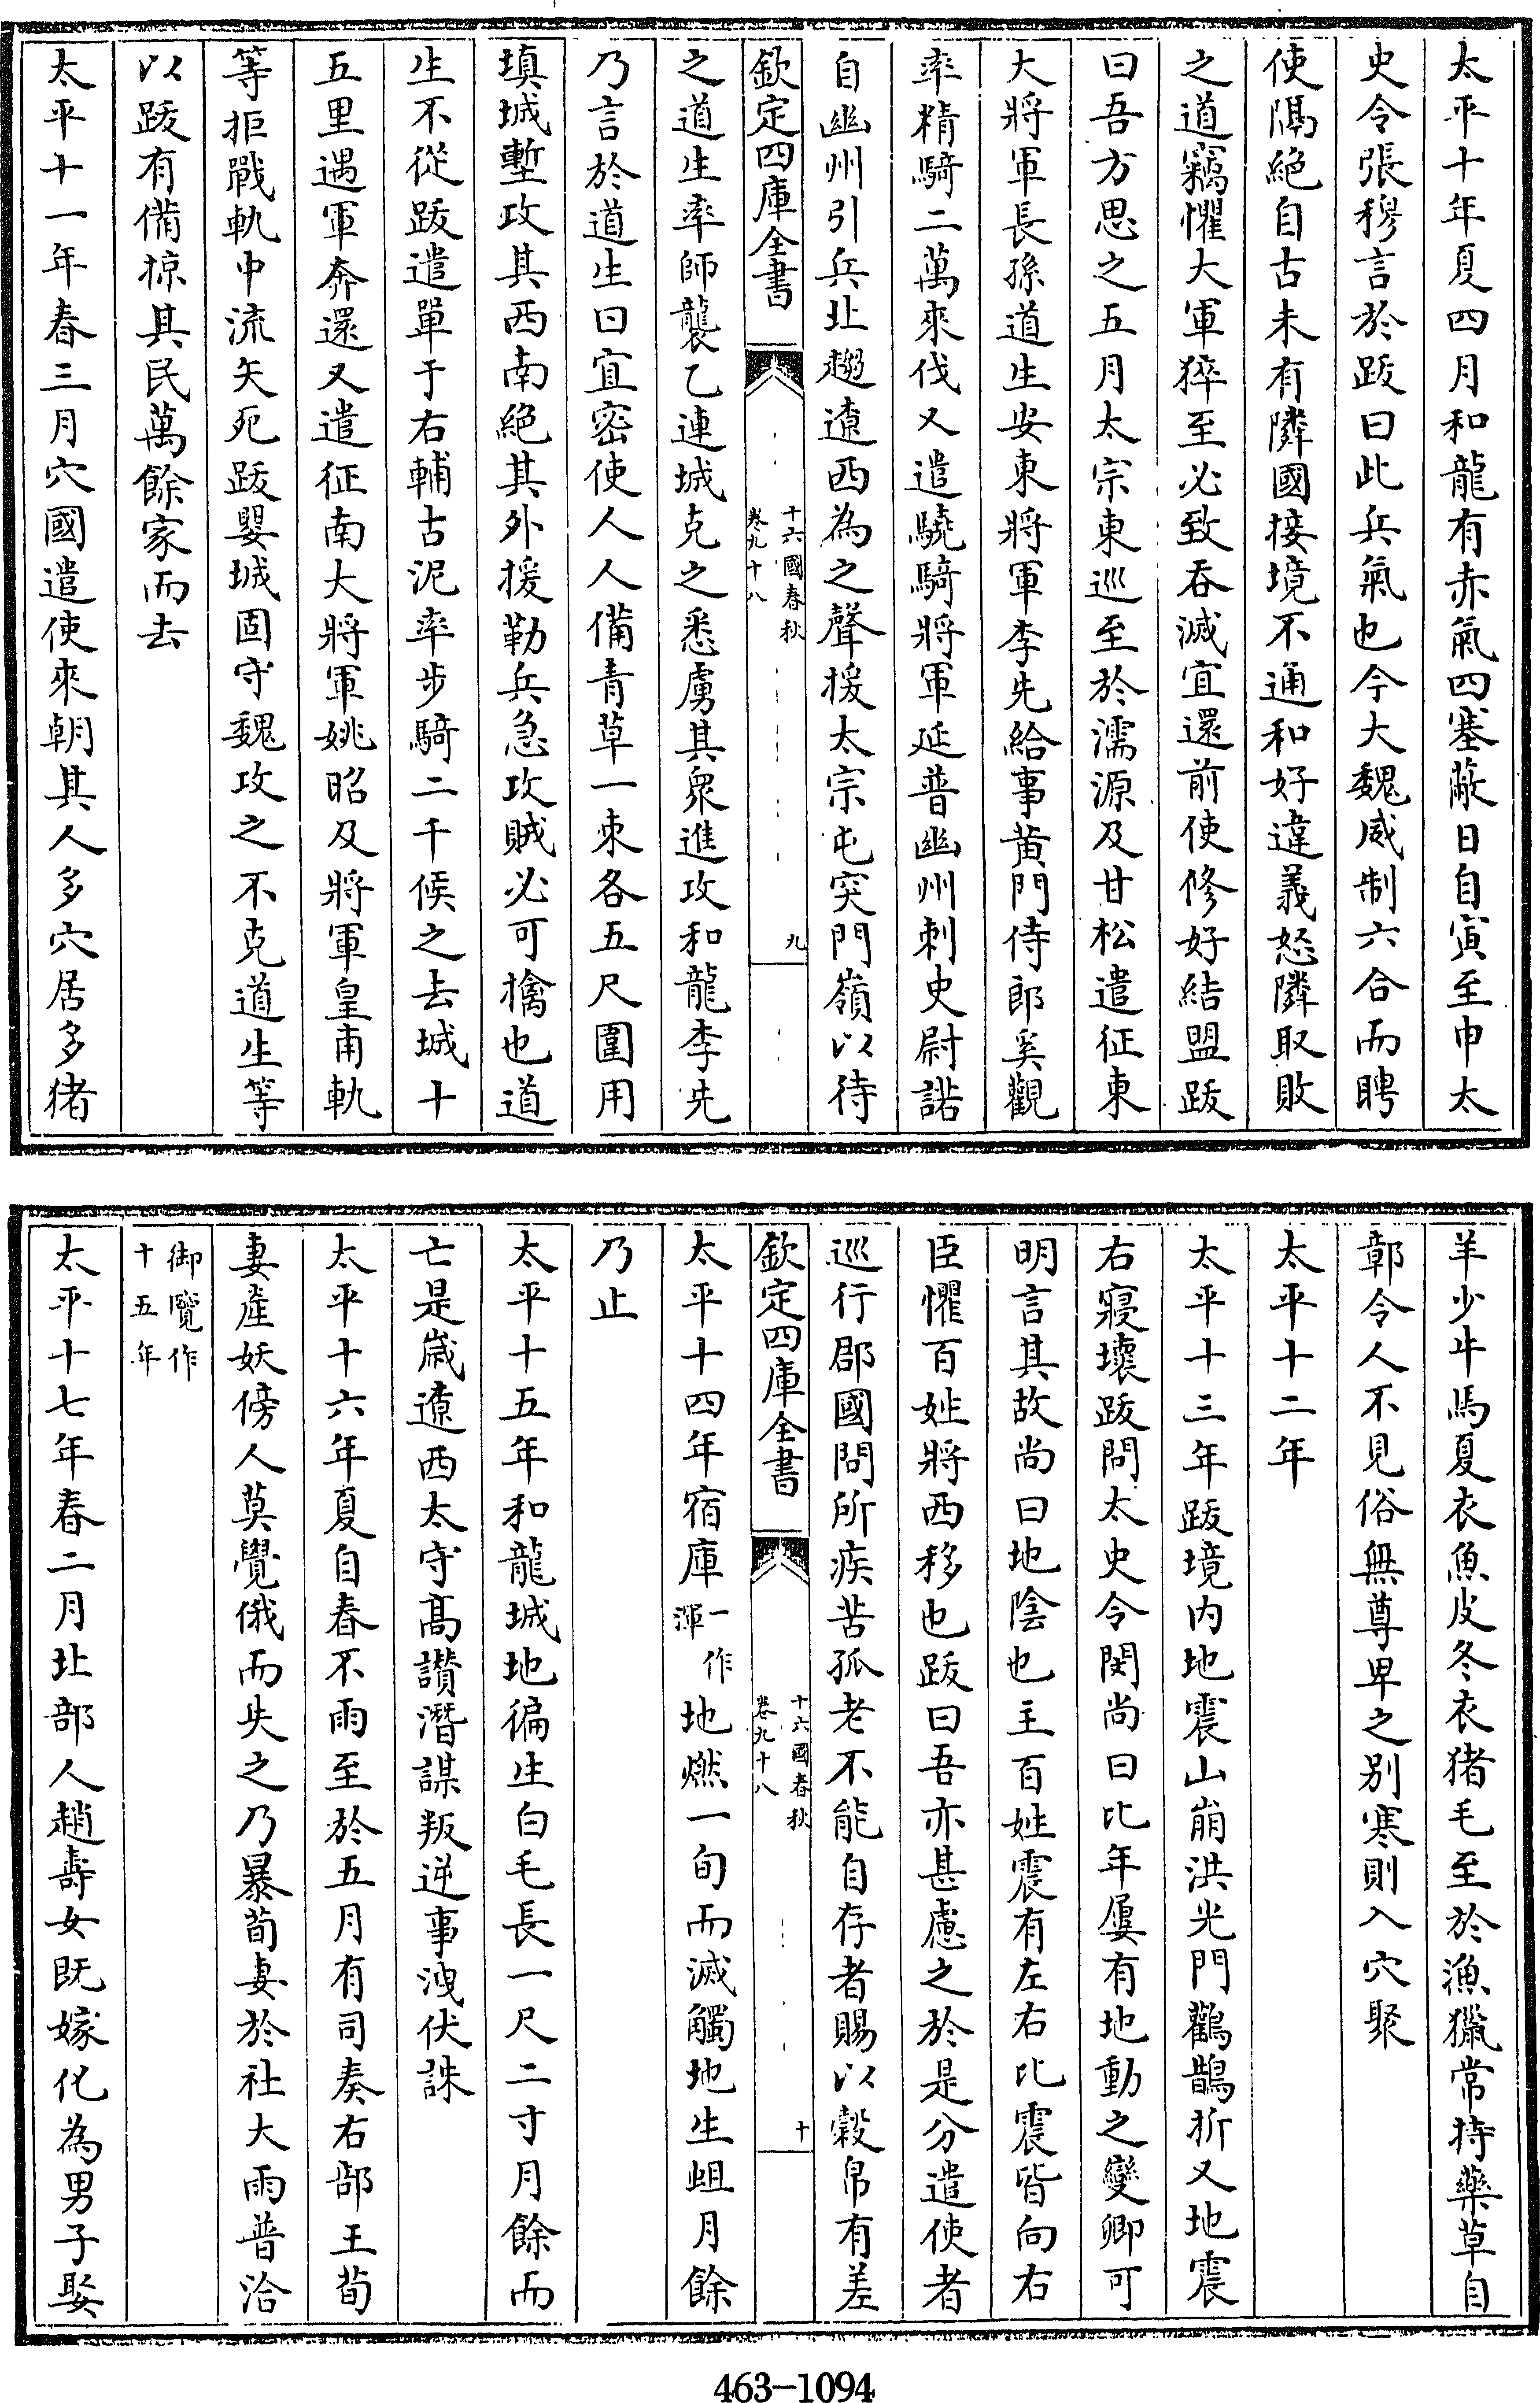 太平十年夏四月和龍有赤氣四塞蔽日自寅至申太
史令張穆言於跋曰此兵氣也今大魏威制六合而聘
使隔絕自古未有隣國接境不通和好違義怒隣取敗
之道竊懼大軍猝至必致吞滅宜還前使修好結盟跋
曰吾方思之五月太宗東巡至於濡源及甘松遣征東
大將軍長孫道生安東將軍李先給事黃門侍郎奚觀
率精騎二萬來伐又遣驍騎將軍延普幽州刺史尉諾
自幽州引兵北趨遼西為之聲援太宗屯突門嶺以待
欽定四庫全書
十六國春秋
卷九十八
九
之道生率師襲乙連城克之悉虜其衆進攻和龍李先
乃言於道生曰宜密使人人備青草一束各五尺圍用
填城塹攻其西南絕其外援勒兵急攻賊必可擒也道
生不從跋遣單于右輔古泥率步騎二千候之去城十
五里遇軍奔還又遣征南大將軍姚昭及將軍皇甫軌
等拒戰軌中流矢死跋嬰城固守魏攻之不克道生等
以跋有備掠其民萬餘家而去
太平十一年春三月穴國遣使來朝其人多穴居多猪
羊少牛馬夏衣魚皮冬衣猪毛至於漁獵常持藥草自
鄣令人不見俗無尊卑之别寒則入穴聚
太平十二年
太平十三年跋境内地震山崩洪光門鸛鵲折又地震
右寢壞跋問太史令閔尚曰比年屢有地動之變卿可
明言其故尚曰地陰也主百姓震有左右比震皆向右
臣懼百姓將西移也跋曰吾亦甚慮之於是分遣使者
巡行郡國問所疾苦孤老不能自存者賜以穀帛有差
欽定四庫全書
十六國春秋
卷九十八
十
太平十四年宿庫一作渾地燃一旬而滅觸地生蛆月餘
乃止
太平十五年和龍城地徧生白毛長一尺二寸月餘而
亡是歲遼西太守高讃潛謀叛逆事洩伏誅
太平十六年夏自春不雨至於五月有司奏右部王荀
妻產妖傍人莫覺俄而失之乃暴荀妻於社大雨普洽
御覽作
十五年
太平十七年春二月北部人趙壽女既嫁化為男子娶
463-1094